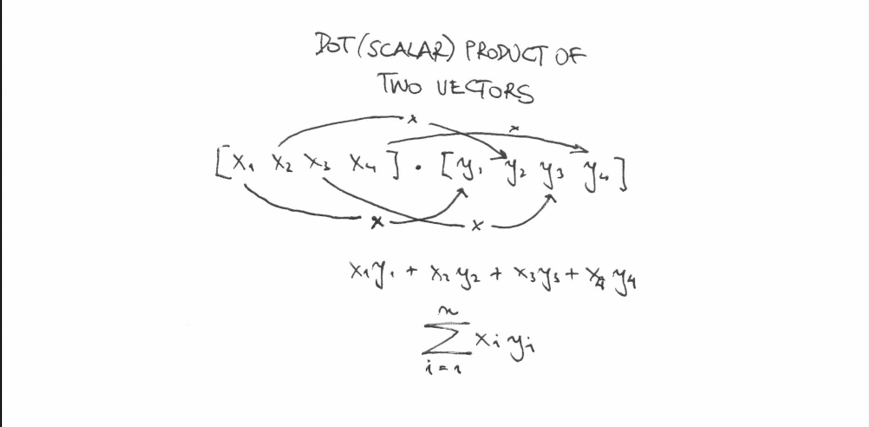 DOT (SCALAR) PRODUCT OF
TWO VECTORS
x x
[x₁ x₂ x₃ x₄] · [y₁ y₂ y₃ y₄]
x x
x₁y₁ + x₂y₂ + x₃y₃ + x₄y₄
n
∑ xᵢyᵢ
i=1